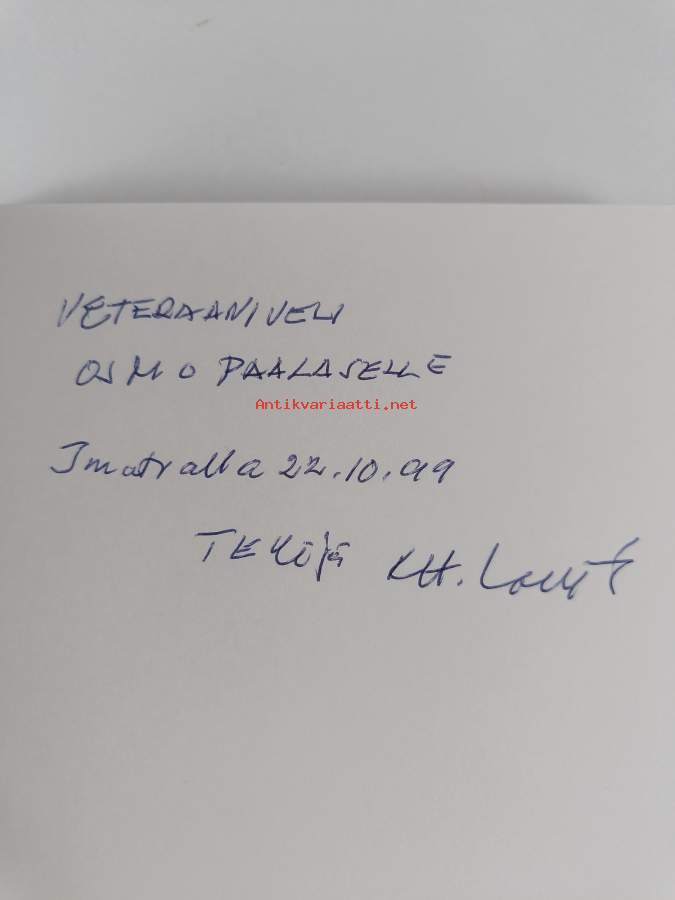 VETERAANIVELI
OSMO PAALASELLE
Antikvariaatti.net
Imatralla 22.10.99
TEKIJÄ